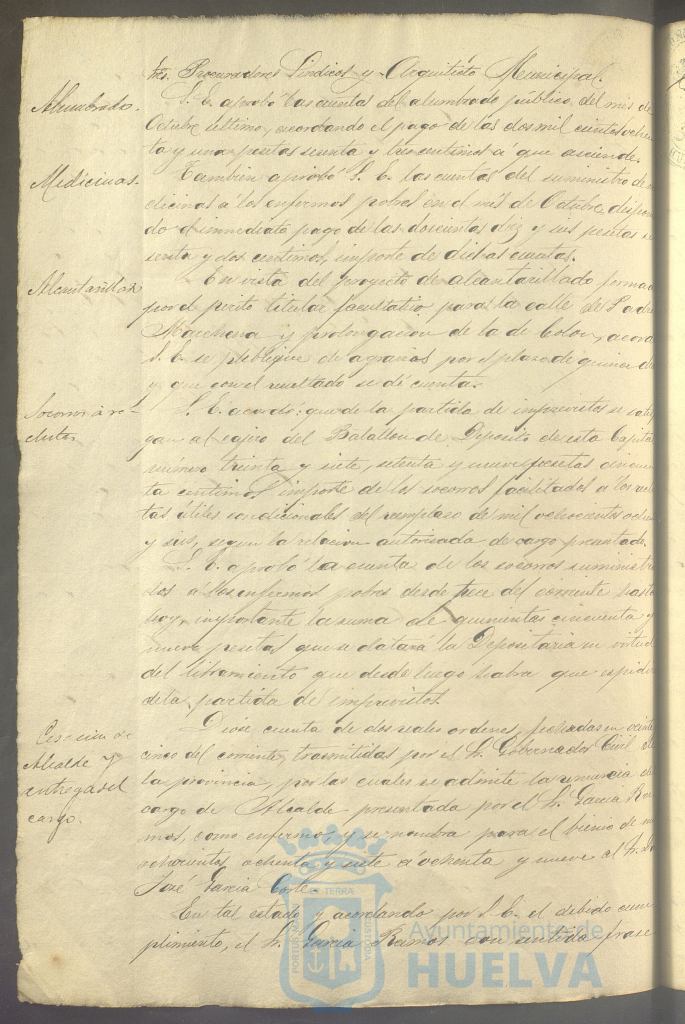 tres. Procuradores Síndicos y Arquitecto Municipal.
Alumbrado.
S. E. aprobó las cuentas del alumbrado público, del mes de
Octubre último, acordando el pago de las dos mil cientos ochen
ta y una pesetas sesenta y tres centimos á que asciende.
Medicinas.
Tambien aprobó S. E. las cuentas del suministro de me
dicinas á los enfermos pobres en el mes de Octubre, dispon
do el inmediato pago de las doscientas diez y seis pesetas se
senta y dos centimos, importe de dichas cuentas.
Alcantarillas
En vista del proyecto de alcantarillado forma
por el perito titular facultativo para la calle de Padre
Marchena y prolongacion de la de Colon, acord
S. E. se publique de agravios por el plazo de quince dia
y que con el resultado se dé cuenta.
Socorros á re-
clutas
S. E. acordó: que de la partida de imprevistos se satis
gan al cajero del Batallon de Depósito de esta Capital
número treinta y siete, setenta y nueve pesetas cincuen
ta centimos importe de los socorros facilitados á los reclu
tas útiles condicionales del reemplazo de mil ochocientos ochen
y seis, segun la relacion autorizada de cargo presentada.
S. E. aprobó la cuenta de los socorros suministra
dos á los enfermos pobres desde trece del corriente hasta
hoy, importante la suma de quinientas cincuenta y
nueve pesetas que se datará la Depositaria en virtud
del libramiento que desde luego habra que espedir
de la partida de imprevistos.
Cesacion de
Alcalde y
entrega del
cargo.
Diose cuenta de dos reales ordenes, fechadas en veinte
cinco del corriente, trasmitidas por el Sr. Gobernador Civil de
la provincia, por las cuales se admite la renuncia del
cargo de Alcalde presentada por el Sr. García Ra
mos, como enfermo, y se nombra para el bienio de mil
ochocientos ochenta y siete á ochenta y nueve al Sr. D.
José García Corte.
En tal estado y acordando por S. E. el debido cum
plimiento, el Sr. García Ramos con sentida frase
Ayuntamiento de
HUELVA